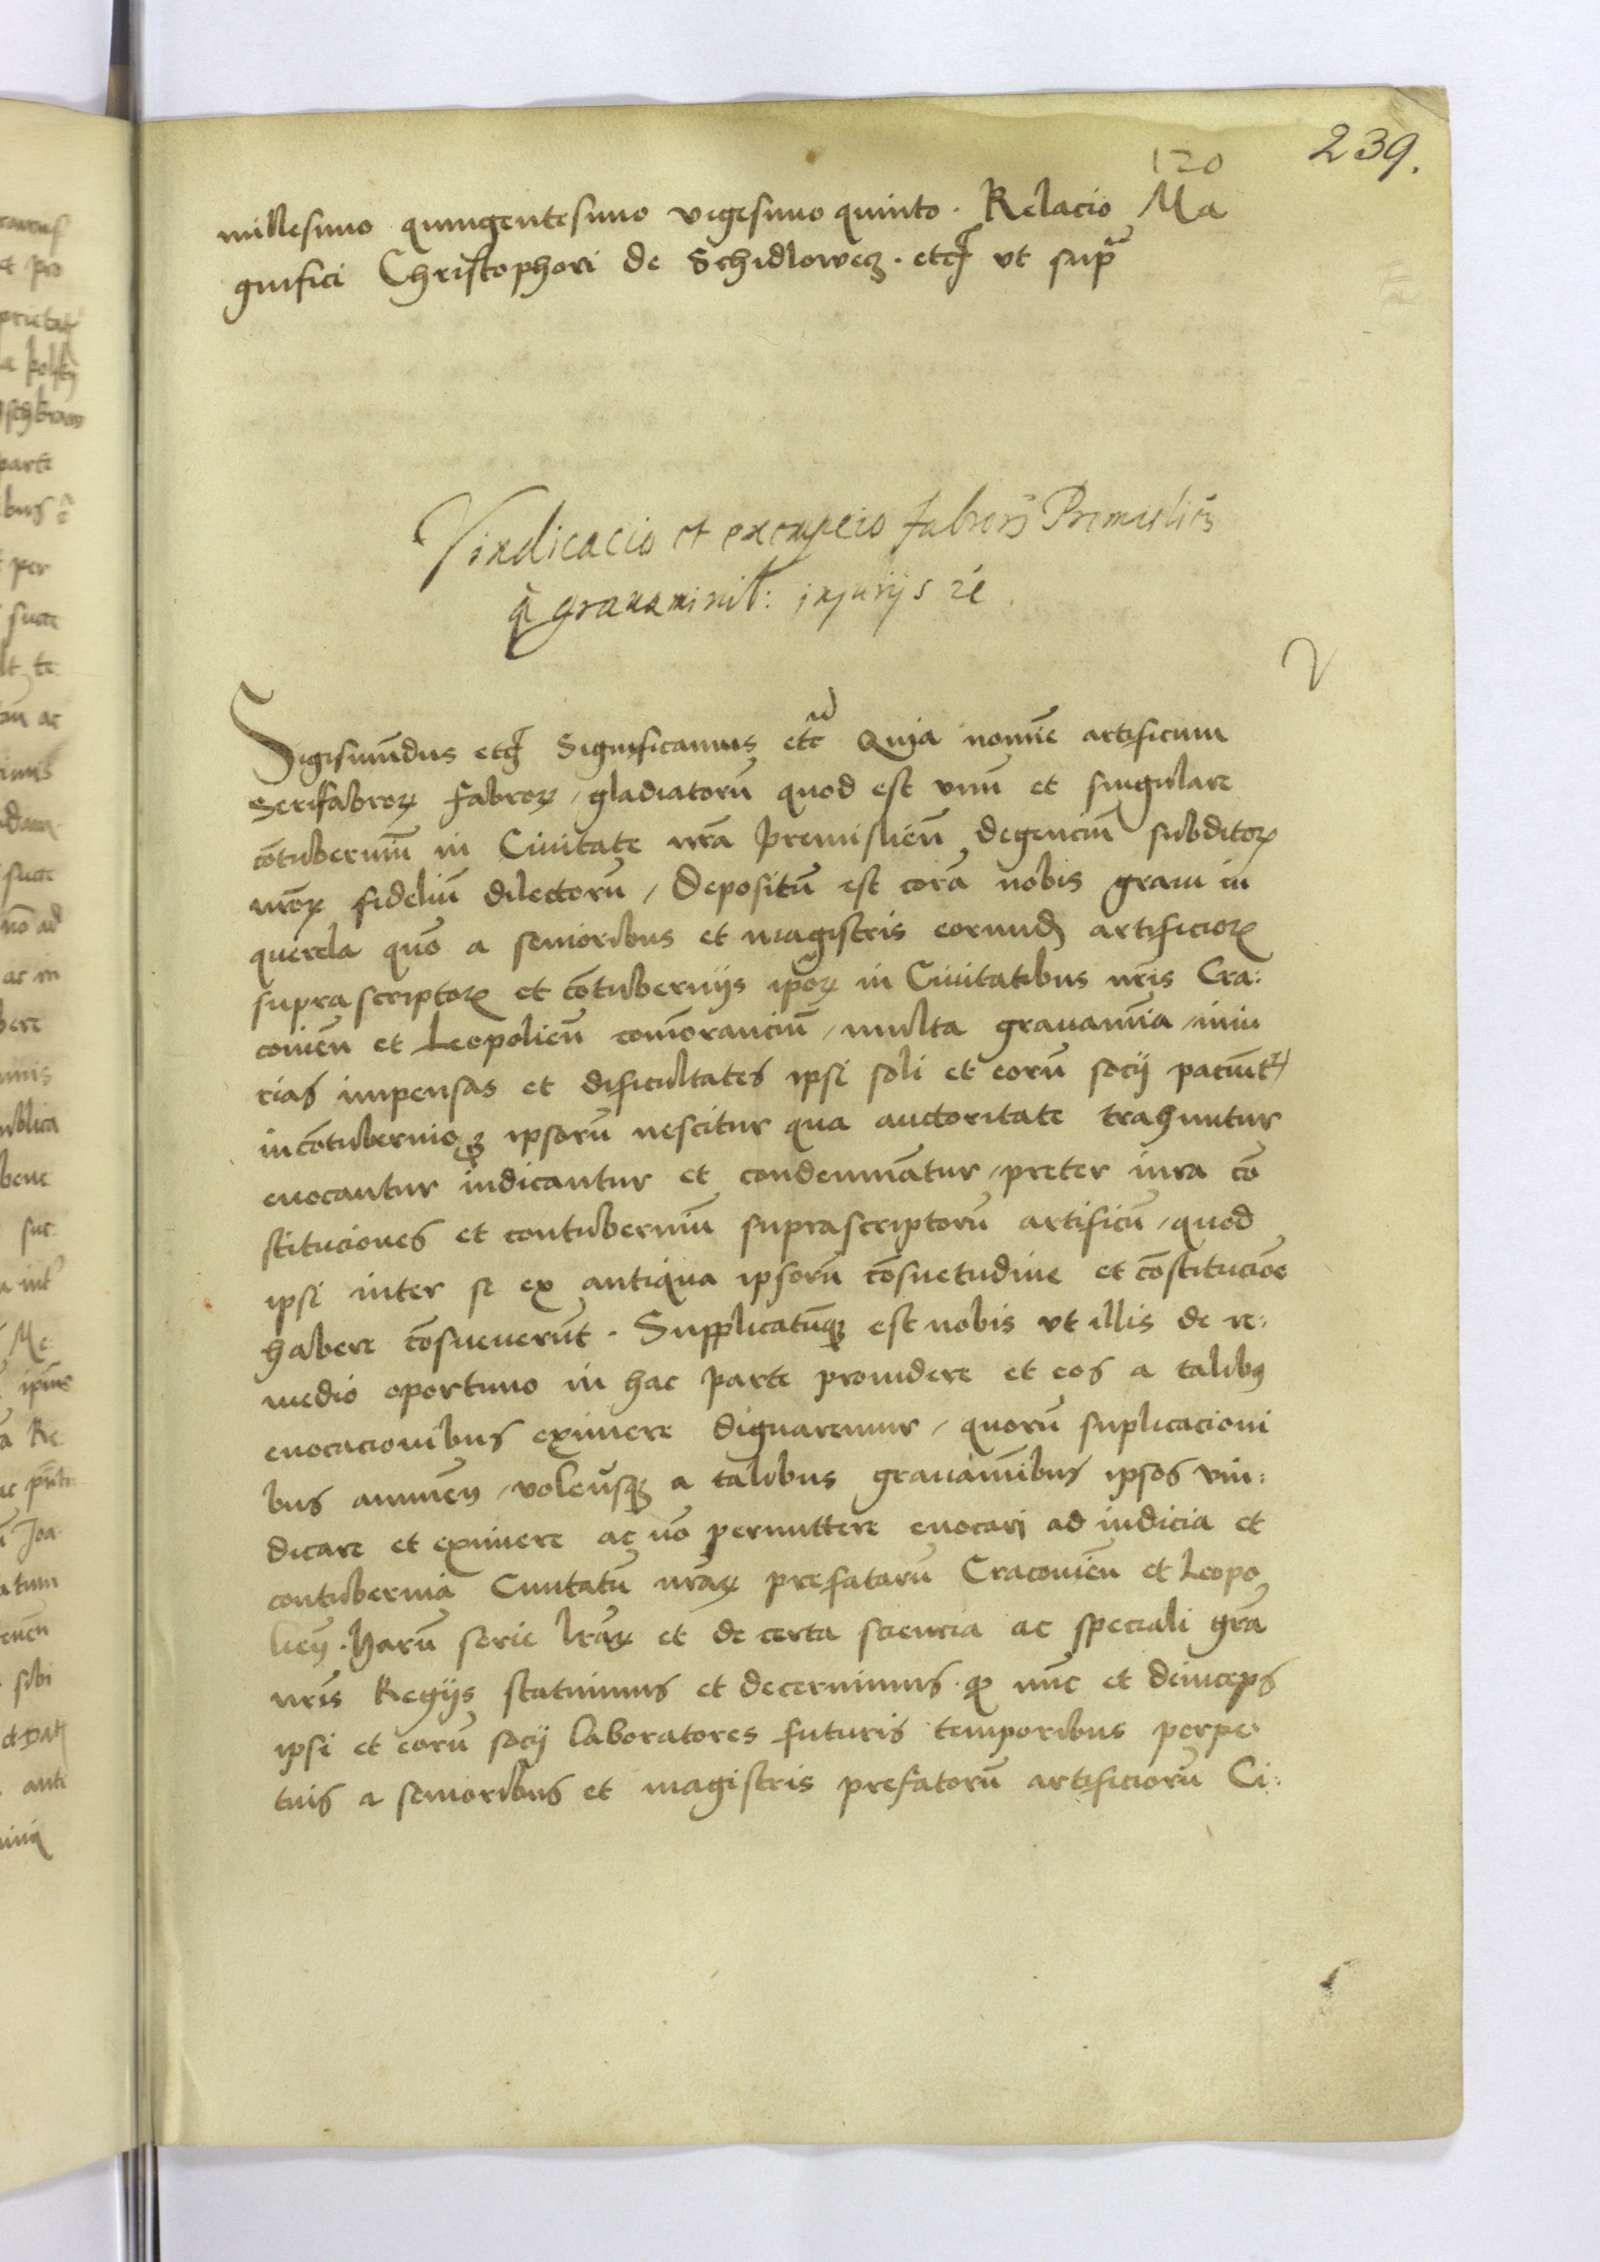 120
239.
millesimo quingentesimo vigesimo quinto. Relacio Ma
gnifici Christophori de Schidlowecz. etc̃ ut supᵃ
Vindicacio et exempcio fabrorū Premislień
a grauaminib: injurijs ꝛc̃.
Sigismūdus etc̃ Significamus etc̃ Quia nomīe artificum
Serifabroꝝ fabroꝝ, gladiatorū quod est vnū et singulare
cōtuberniū in Ciuitate nr̃a Premislień degenciū subditoꝝ
nr̃oꝝ fideliū dilectorū, Depositū est corā nobis graui in
querela quō a senioribus et magistris eorundꝫ artificioꝝ
supra scriptoꝝ et cōtubernijs ipoꝝ in Ciuitatibus nr̃is Cra:
couień et Leopolień com̄oranciū, multa grauamīa iniu
rias impensas et dificultates ipsi soli et eorū socij paciūtʳ
in cōtubernioqꝫ ipsorū nescitur qua auctoritate trahuntur
euocantur iudicantur et condemnātur, preter iura cō
stituciones et contuberniū suprascriptorū artificū, quod
ipsi inter se ex antiqua ipsorū cōsuetudine et cōstitucioē
habere cōsueuerūt. Supplicatūqꝫ est nobis ut illis de re:
medio oportuno in hac parte prouidere et eos a talibꝰ
euocacionibus eximere dignaremur, quorū suplicacioni
bus annueń, voleńsqꝫ a talibus grauamībus ipsos vin:
dicare et eximere ac nō permittere euocari ad iudicia et
contubernia Ciuitatū nr̃aꝝ prefatarū Cracouień et Leopo
lień. Harū serie lr̃aꝝ et de certa sciencia ac speciali gr̃a
nr̃is Regijs statuimus et decernimus. qꝫ nūc et deinceps
ipsi et eorū socij laboratores futuris temporibus perpe:
tuis a senioribus et magistris prefatorū artificiorū Ci: